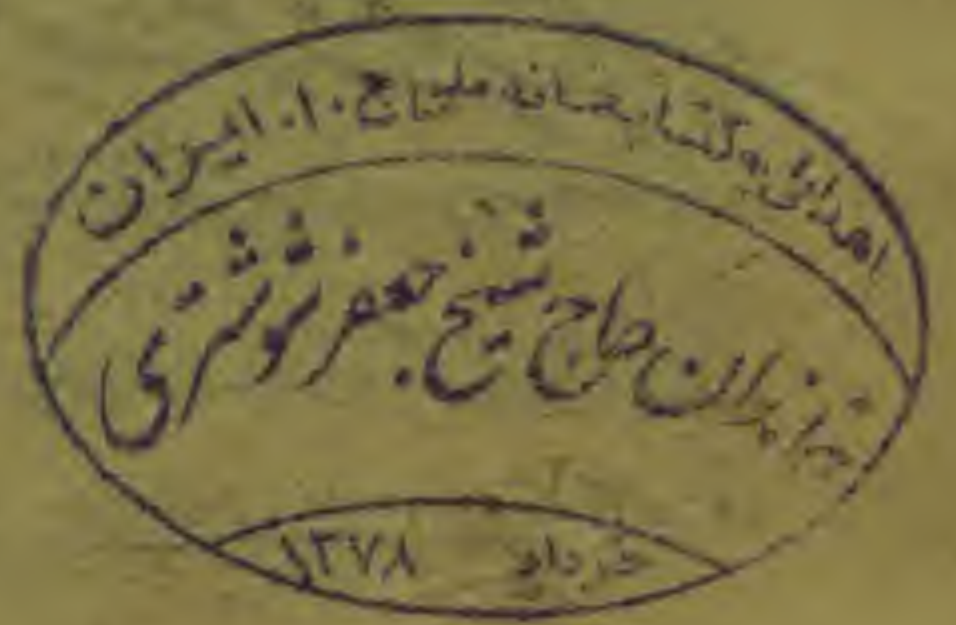 اهدایی به کتابخانه ملی ج.ا. ایران
حاج شیخ جعفر شوشتری
خرداد ۱۳۷۸